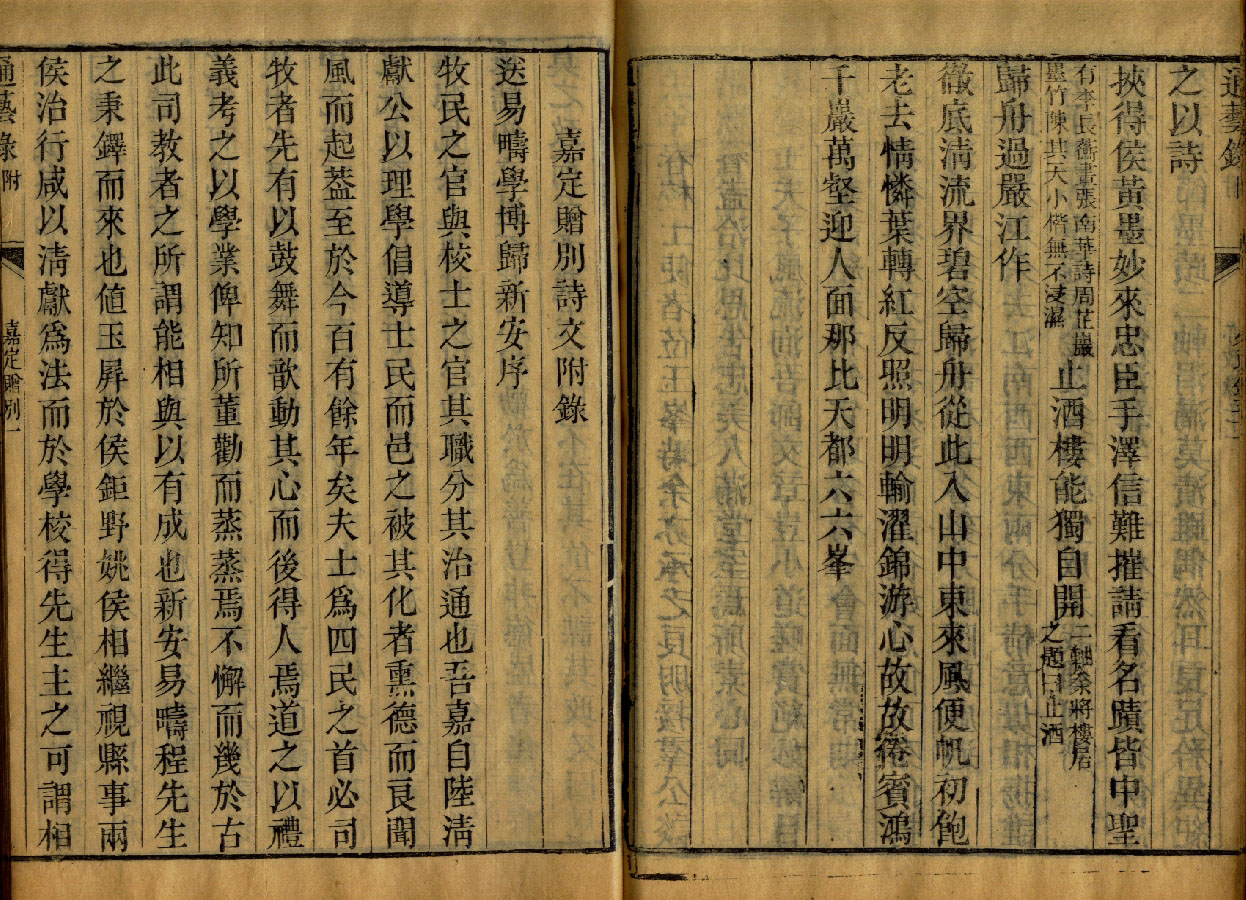 通藝錄
之以詩
挾得侯黃墨妙來忠臣手澤信難摧請看名蹟皆中聖
有李長衡畫張南華詩周芷巖
墨竹陳其大小楷無不浸濕
止酒樓能獨自開
二軸余將樓居
之題曰止酒
歸舟過嚴江作
徹底淸流界碧空歸舟從此入山中東來風便帆初飽
老去情憐葉轉紅反照明明輸濯錦游心故故倦賓鴻
千巖萬壑迎人面那比天都六六峯
嘉定贈別詩文附錄
送易疇學博歸新安序
牧民之官與校士之官其職分其治通也吾嘉自陸淸
獻公以理學倡導士民而邑之被其化者熏德而良聞
風而起葢至於今百有餘年矣夫士爲四民之首必司
牧者先有以鼓舞而歆動其心而後得人焉道之以禮
義考之以學業俾知所董勸而蒸蒸焉不懈而幾於古
此司教者之所謂能相與以有成也新安易疇程先生
之秉鐸而來也値玉屛於侯鉅野姚侯相繼視縣事兩
侯治行咸以淸獻爲法而於學校得先生主之可謂相
通藝錄 附
嘉定贈別 一